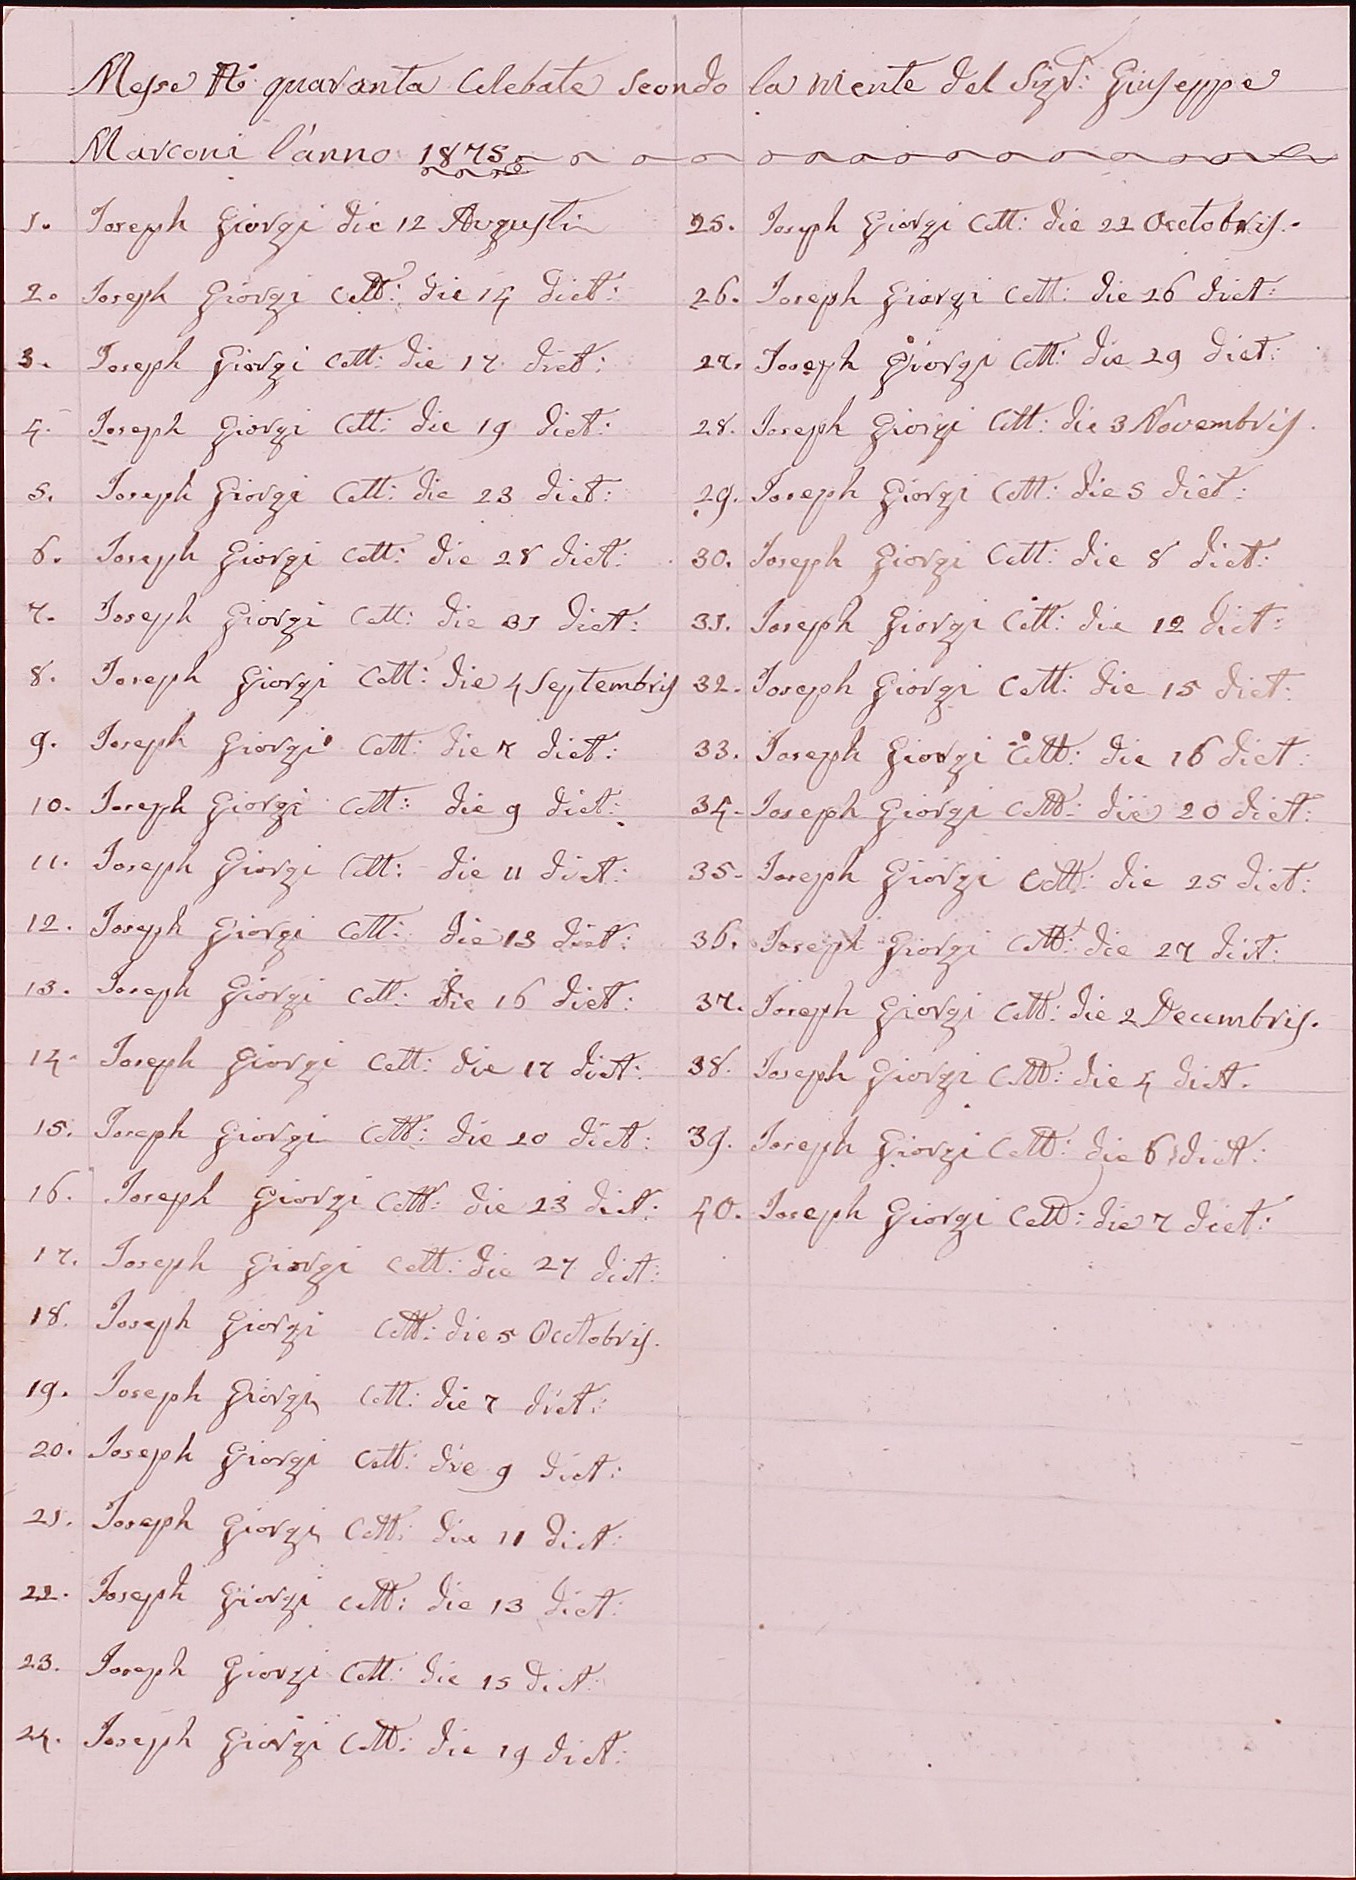 Messe N° quaranta Celebate Secondo la Mente del Sigr: Giuseppe
Marconi l'anno 1875.
1. Joseph Giorgi die 12 Augusti
2. Joseph Giorgi Cett: die 14 dict:
3. Joseph Giorgi Cett: die 17 dict:
4. Joseph Giorgi Cett: die 19 dict:
5. Joseph Giorgi Cett: die 23 dict:
6. Joseph Giorgi Cett: die 28 dict:
7. Joseph Giorgi Cett: die 31 dict:
8. Joseph Giorgi Cett: die 4 Septembris
9. Joseph Giorgi Cett: die 7 dict:
10. Joseph Giorgi Cett: die 9 dict:
11. Joseph Giorgi Cett: die 11 dict:
12. Joseph Giorgi Cett: die 13 dict:
13. Joseph Giorgi Cett: die 16 dict:
14. Joseph Giorgi Cett: die 17 dict:
15. Joseph Giorgi Cett: die 20 dict:
16. Joseph Giorgi Cett: die 23 dict:
17. Joseph Giorgi Cett: die 27 dict:
18. Joseph Giorgi Cett: die 5 Occtobris.
19. Joseph Giorgi Cett: die 7 dict:
20. Joseph Giorgi Cett: die 9 dict:
21. Joseph Giorgi Cett: die 11 dict:
22. Joseph Giorgi Cett: die 13 dict:
23. Joseph Giorgi Cett: die 15 dict:
24. Joseph Giorgi Cett: die 19 dict:
25. Joseph Giorgi Cett: die 22 Occtobris.
26. Joseph Giorgi Cett: die 26 dict:
27. Joseph Giorgi Cett: die 29 dict:
28. Joseph Giorgi Cett: die 3 Novembris.
29. Joseph Giorgi Cett: die 5 dict:
30. Joseph Giorgi Cett: die 8 dict:
31. Joseph Giorgi Cett: die 12 dict:
32. Joseph Giorgi Cett: die 15 dict:
33. Joseph Giorgi Cett: die 16 dict:
34. Joseph Giorgi Cett: die 20 dict:
35. Joseph Giorgi Cett: die 25 dict:
36. Joseph Giorgi Cett: die 27 dict:
37. Joseph Giorgi Cett: die 2 Decembris.
38. Joseph Giorgi Cett: die 4 dict.
39. Joseph Giorgi Cett: die 6 dict:
40. Joseph Giorgi Cett: die 7 dict: